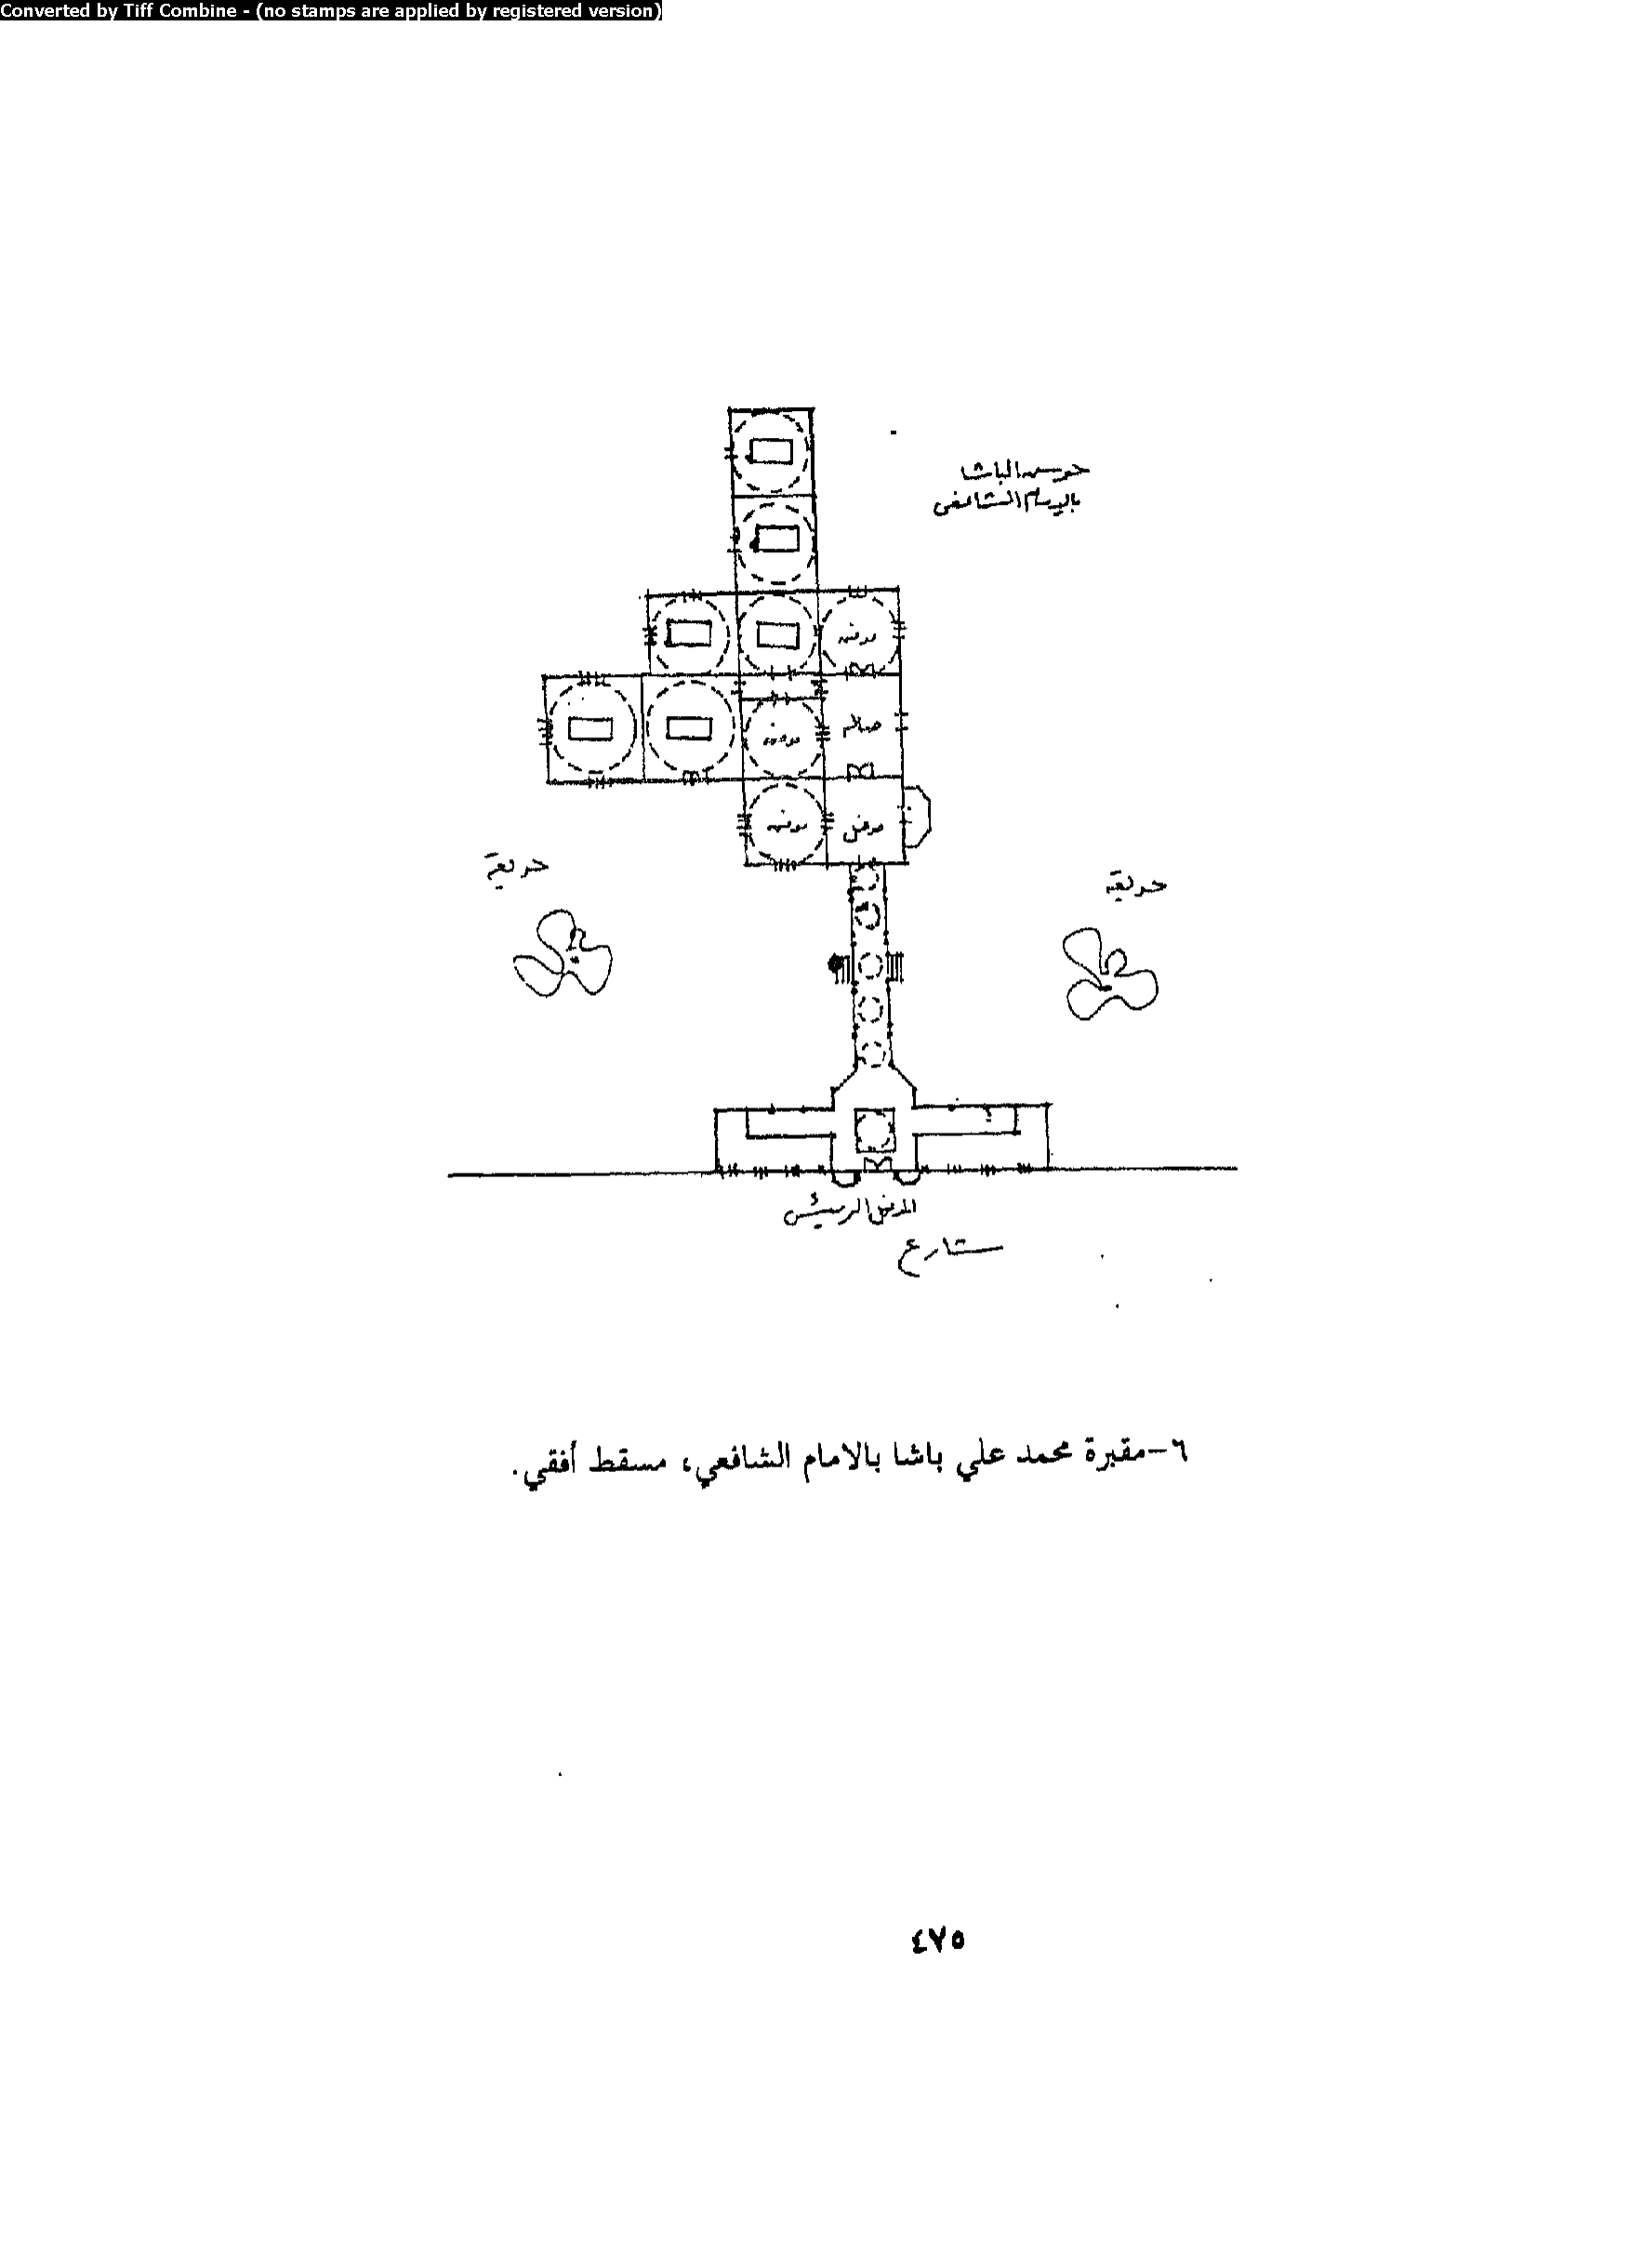 Converted by Tiff Combine - (no stamps are applied by registered version)
حوش الباشا
بالإمام الشافعى
مدفن
صاله
مدفن
مدفن
مدخل
حديقة
حديقة
المدخل الرئيسى
شارع
٦-مقبرة محمد علي باشا بالامام الشافعي، مسقط أفقي.
٤٧٥